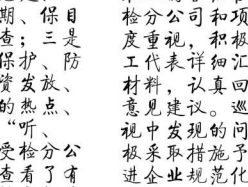 期、保目
查；三是
保护、防
资发放、
的热点、
“听、
受检分公
查看了有
检分公司和项
度重视，积极
工代表详细汇
材料，认真回
意见建议。巡
视中发现的问
极采取措施予
进企业规范化